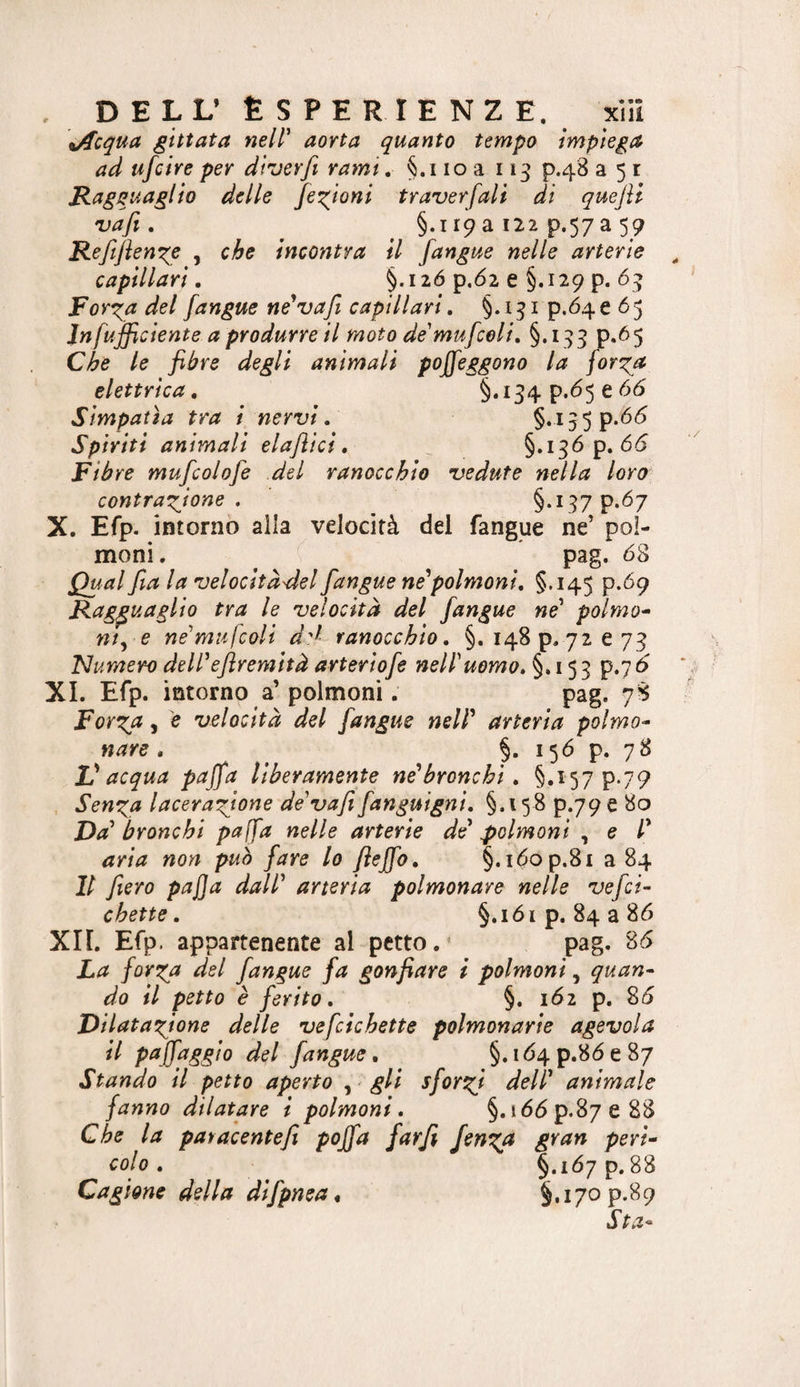 DELL' ESPERIENZE. xiii
Acqua gittata nell' aorta quanto tempo impiega
ad uſcire per diverſi rami. §.110 a 113 p.48 a 51
Ragguaglio delle ſezioni traverſali di queſti
vaſi. §.119 a 122 p.57 a 59
Reſiſtenze, che incontra il ſangue nelle arterie
capillari. §.126 p.62 e §.129 p. 63
Forza del ſangue ne'vaſi capillari. §.131 p.64 e 65
Inſufficiente a produrre il moto de'muſcoli. §.133 p.65
Che le fibre degli animali poſſeggono la forza
elettrica. §.134 p.65 e 66
Simpatìa tra i nervi. §.135 p.66
Spiriti animali elaſtici. §.136 p. 66
Fibre muſcoloſe del ranocchio vedute nella loro
contrazione. §.137 p.67
X. Eſp. intorno alla velocità del ſangue ne' pol-
moni. pag. 68
Qual ſia la velocità del ſangue ne'polmoni. §.145 p.69
Ragguaglio tra le velocità del ſangue ne' polmo-
ni, e ne'muſcoli del ranocchio. §. 148 p. 72 e 73
Numero dell'eſtremità arterioſe nell'uomo. §.153 p.76
XI. Eſp. intorno a' polmoni. pag. 78
Forza, e velocità del ſangue nell' arteria polmo-
nare. §. 156 p. 78
L'acqua paſſa liberamente ne'bronchi. §.157 p.79
Senza lacerazione de'vaſi ſanguigni. §.158 p.79 e 80
Da' bronchi paſſa nelle arterie de' polmoni, e l'
aria non può fare lo ſteſſo. §.160 p.81 a 84
Il ſiero paſſa dall' arteria polmonare nelle veſci-
chette. §.161 p. 84 a 86
XII. Eſp. appartenente al petto. pag. 86
La forza del ſangue fa gonfiare i polmoni, quan-
do il petto è ferito. §. 162 p. 86
Dilatazione delle veſcichette polmonarie agevola
il paſſaggio del ſangue. §.164 p.86 e 87
Stando il petto aperto, gli sforzi dell' animale
fanno dilatare i polmoni. §.166 p.87 e 88
Che la paracenteſi poſſa farſi ſenza gran peri-
colo. §.167 p.88
Cagione della diſpnea. §.170 p.89
Sta-